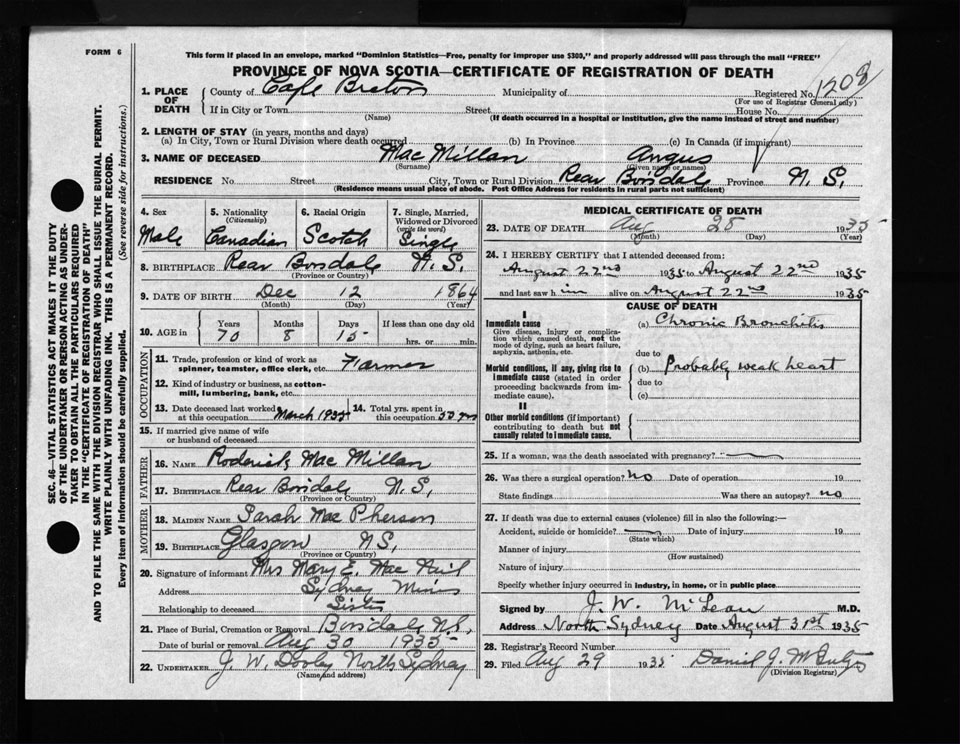 FORM 6
This form if placed in an envelope, marked "Dominion Statistics—Free, penalty for improper use $300," and properly addressed will pass through the mail "FREE"
PROVINCE OF NOVA SCOTIA—CERTIFICATE OF REGISTRATION OF DEATH
SEC. 46—VITAL STATISTICS ACT MAKES IT THE DUTY
OF THE UNDERTAKER OR PERSON ACTING AS UNDER-
TAKER TO OBTAIN ALL THE PARTICULARS REQUIRED
IN THE "CERTIFICATE OF REGISTRATION OF DEATH"
AND TO FILE THE SAME WITH THE DIVISION REGISTRAR WHO SHALL ISSUE THE BURIAL PERMIT.
WRITE PLAINLY WITH UNFADING INK. THIS IS A PERMANENT RECORD.
Every item of information should be carefully supplied. (See reverse side for instructions.)
1. PLACE OF DEATH
County of Cape Breton Municipality of Registered No. 1208
(For use of Registrar General only)
If in City or Town Street House No.
(Name) (If death occurred in a hospital or institution, give the name instead of street and number)
2. LENGTH OF STAY (in years, months and days)
(a) In City, Town or Rural Division where death occurred (b) In Province (c) In Canada (if immigrant)
3. NAME OF DECEASED Mac Millan Angus
(Surname) (Given name or names)
RESIDENCE No. Street City, Town or Rural Division Rear Boisdale Province N. S.
(Residence means usual place of abode. Post Office Address for residents in rural parts not sufficient)
4. Sex
Male
5. Nationality
(Citizenship)
Canadian
6. Racial Origin
Scotch
7. Single, Married,
Widowed or Divorced
(write the word)
Single
8. BIRTHPLACE Rear Boisdale N. S.
(Province or Country)
9. DATE OF BIRTH Dec 12 1864
(Month) (Day) (Year)
10. AGE in
Years Months Days If less than one day old
70 8 15 hrs. or min.
OCCUPATION
11. Trade, profession or kind of work as
spinner, teamster, office clerk, etc. Farmer
12. Kind of industry or business, as cotton-
mill, lumbering, bank, etc.
13. Date deceased last worked
at this occupation March 1935
14. Total yrs. spent in
this occupation 50 yrs
15. If married give name of wife
or husband of deceased
FATHER
16. NAME Roderick Mac Millan
17. BIRTHPLACE Rear Boisdale N. S.
(Province or Country)
MOTHER
18. MAIDEN NAME Sarah Mac Pherson
19. BIRTHPLACE Glasgow N.S.
(Province or Country)
20. Signature of informant Mrs Mary E. Mac Neil
Address Sydney Mines
Relationship to deceased Sister
21. Place of Burial, Cremation or Removal Boisdale N.S.
Date of burial or removal Aug 30 1935
22. UNDERTAKER J. W. Dooley North Sydney
(Name and address)
MEDICAL CERTIFICATE OF DEATH
23. DATE OF DEATH Aug 28 1935
(Month) (Day) (Year)
24. I HEREBY CERTIFY that I attended deceased from:
August 22nd 1935 to August 22nd 1935
and last saw him alive on August 22nd 1935
CAUSE OF DEATH
I
Immediate cause
Give disease, injury or complica-
tion which caused death, not the
mode of dying, such as heart failure,
asphyxia, asthenia, etc.
(a) Chronic Bronchitis
due to
Morbid conditions, if any, giving rise to
immediate cause (stated in order
proceeding backwards from im-
mediate cause).
(b) Probably weak heart
due to
(c)
II
Other morbid conditions (if important)
contributing to death but not
causally related to immediate cause.
25. If a woman, was the death associated with pregnancy?
26. Was there a surgical operation? no Date of operation 19
State findings Was there an autopsy? no
27. If death was due to external causes (violence) fill in also the following:—
Accident, suicide or homicide? Date of injury 19
(State which)
Manner of injury
(How sustained)
Nature of injury
Specify whether injury occurred in industry, in home, or in public place
Signed by J. W. McLean M.D.
Address North Sydney Date August 31st 1935
28. Registrar's Record Number
29. Filed Aug 29 1935 Daniel J.
(Division Registrar)